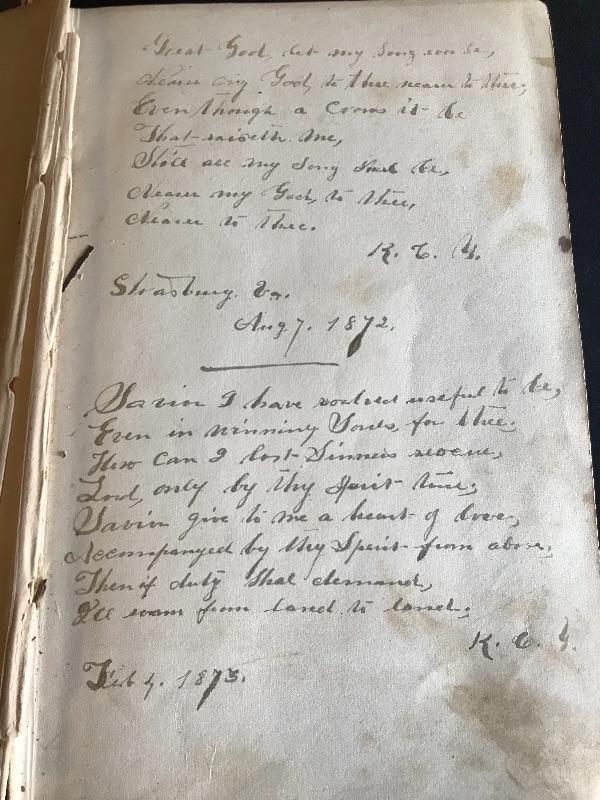 Great God, let my Song ever be,
Nearer my God, to thee nearer to thee;
Even though a Cross it be
That raiseth me,
Still all my Song Shall be,
Nearer my God, to thee,
Nearer to thee.
K. C. Y.
Strasburg Va.
Aug 7. 1872.
Savior I have resolved useful to be,
Even in winning Souls for thee;
How Can I lost Sinners rescue,
Lord, only by thy Spirit true;
Savior give to me a heart of love,
Accompanyed by thy Spirit from above;
Then if duty Shal demand,
I'll roam from land to land;
K. C. Y.
Feb 4. 1873.